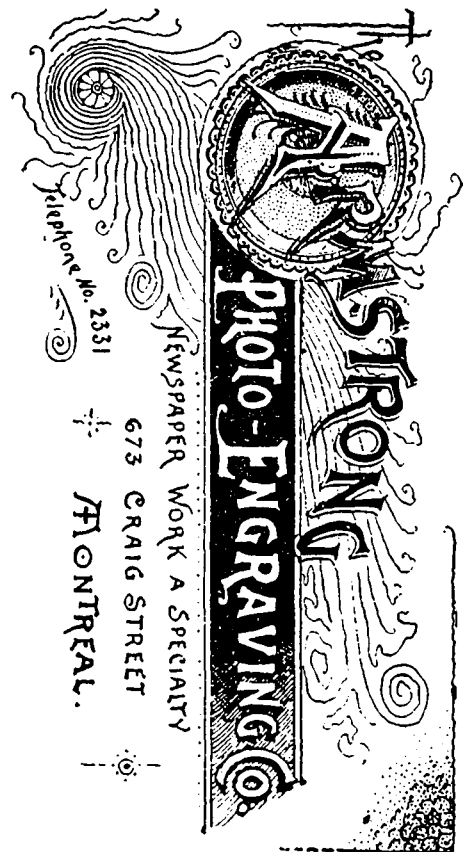 ARMSTRONG
PHOTO-ENGRAVING Co.
NEWSPAPER WORK A SPECIALTY
673 CRAIG STREET
MONTREAL.
Telephone No. 2331